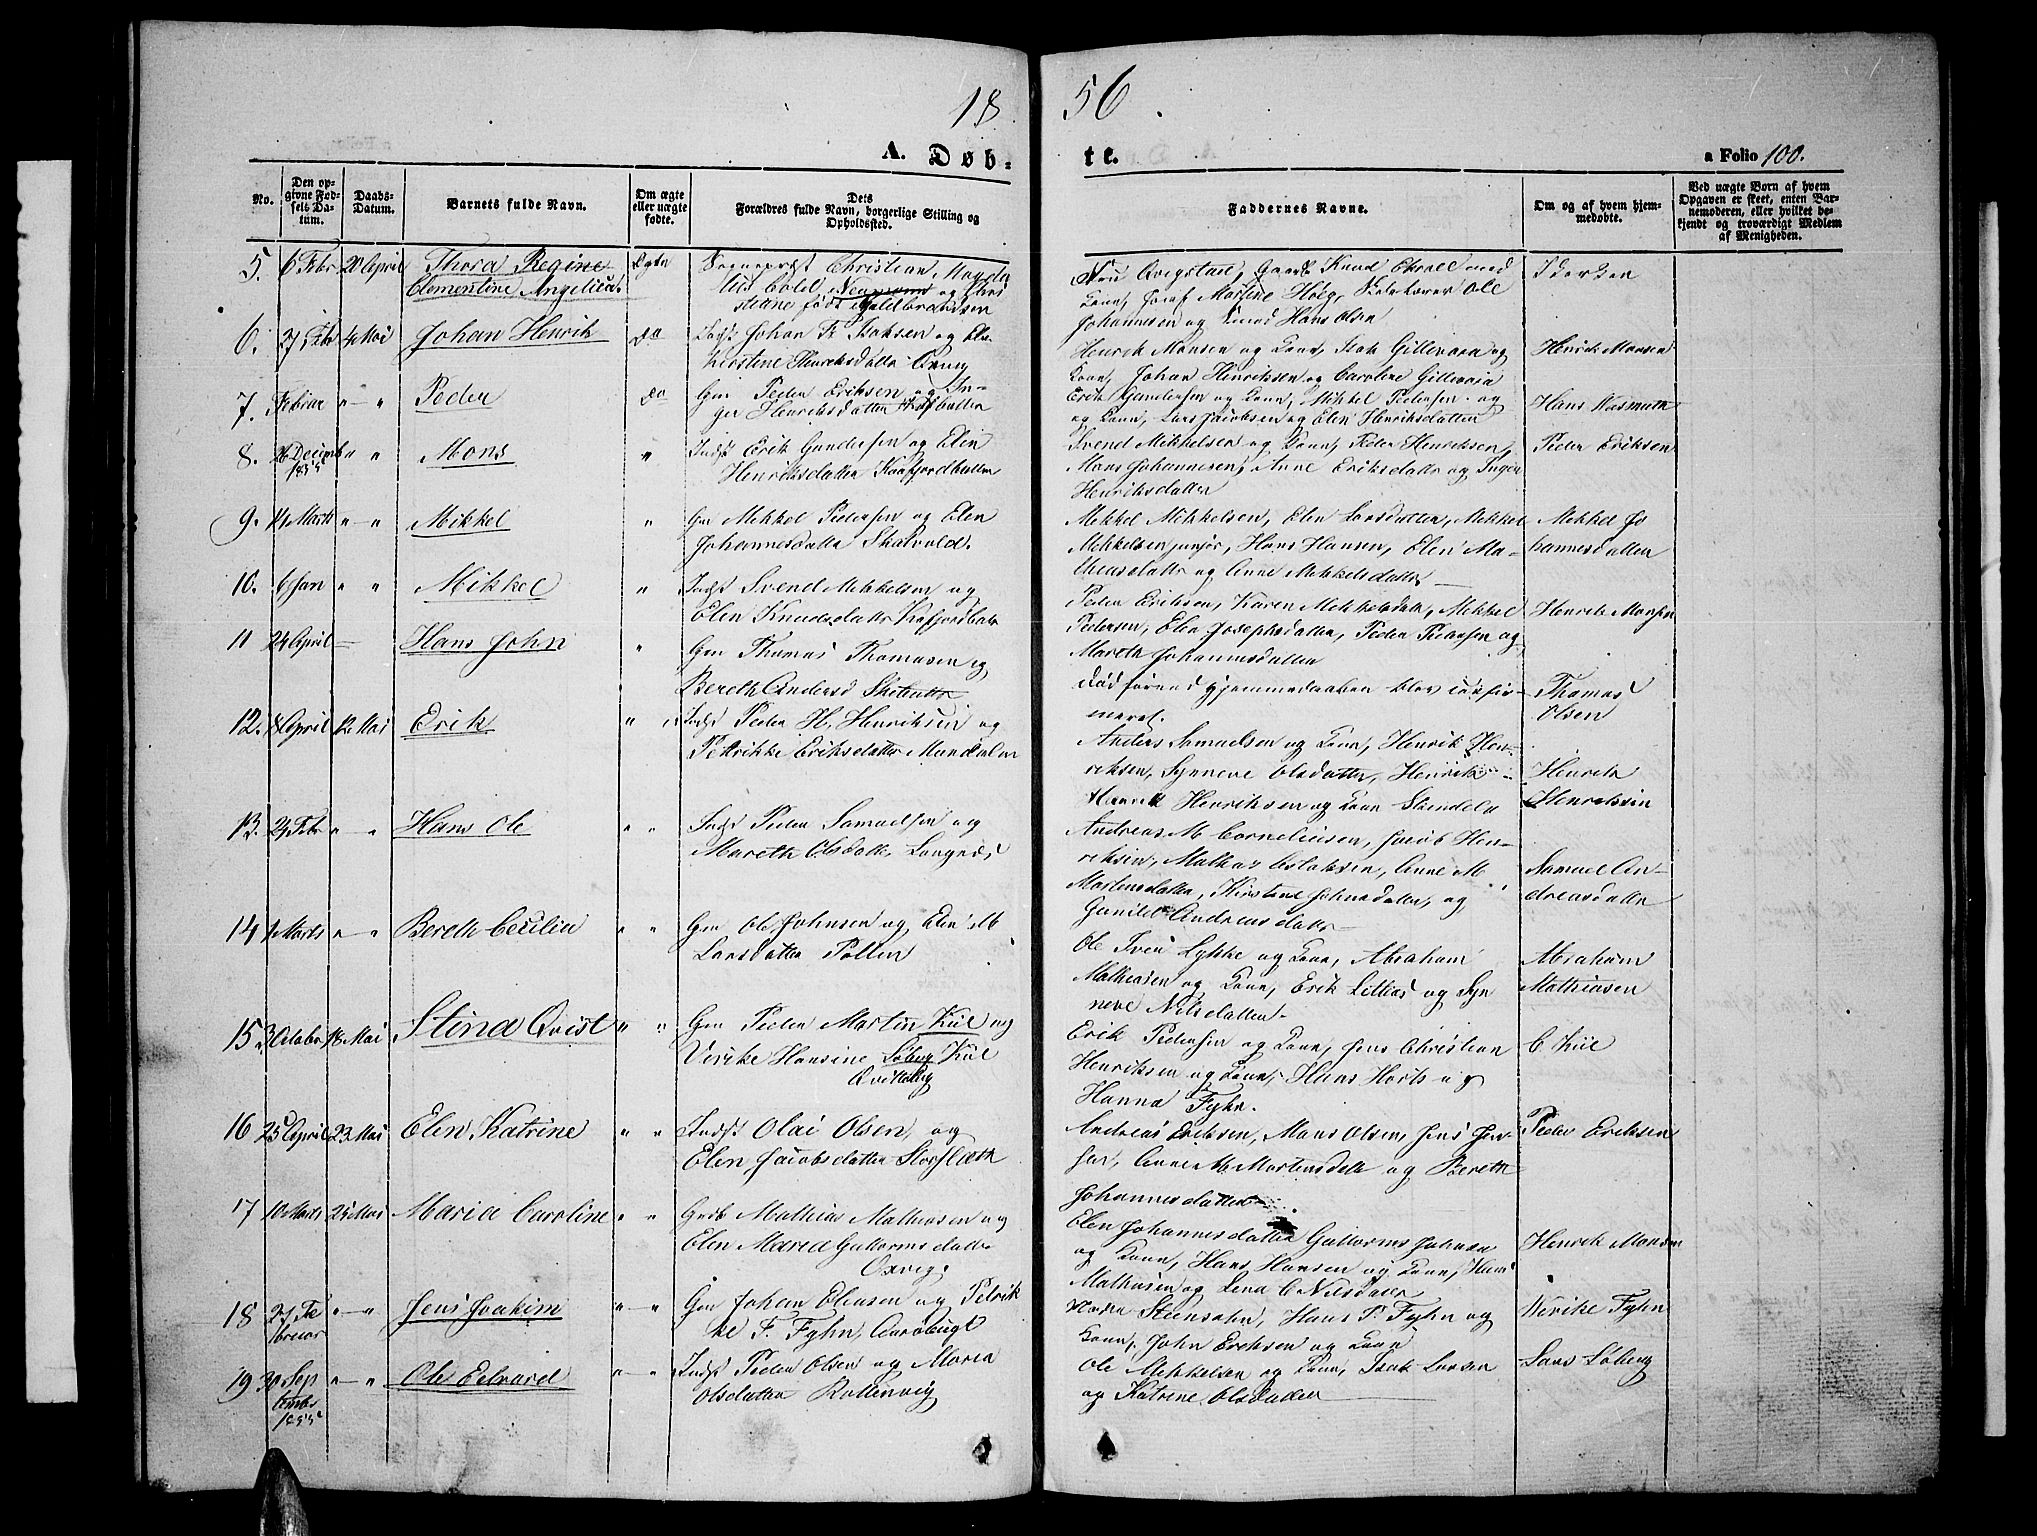 1856.
A. Døbte.
a Folio 100.
No.
Den opgivne Fødsels Datum.
Daabs-Datum.
Barnets fulde Navn.
Om ægte eller uægte fødte.
Dets Forældres fulde Navn, borgerlige Stilling og Opholdssted.
Faddernes Navne.
Om og af hvem hjemmedøbte.
Ved uægte Børn af hvem Opgaven er skeet, enten Barnemoderen, eller hvilket bekjendt og troværdigt Medlem af Menigheden.
5. 6 Febr 20 April Thora Regine Clementine Angelica
Sognepræst Christian
født Hildbrandsen
Fru Qvigstad, Knud
Kone, Høeg, Ole
Johannesen og Hans Olsen
I Kirken
6. 27 Febr 4 Mai Johan Henrik do
Inds Johan Isaksen og
Kirstine Henriksdatter
Henrik Monsen og Kone, Isak Gillevara og
Kone, Johan Henriksen og Caroline Gillevara
Henrik Monsen
7. Februar " " Peder do
Gm Peder Eriksen og In-
ger Henriksdatter
Erik Gundersen og Kone, Mikkel Pedersen og
og Kone, Lars Jacobsen og Elen Henriksdatter
Hans Wasmuth
8. 26 Decemb 1855 " " Mons "
Inds Erik Gundersen og Elen
Henriksdatter Kaafjordbotten
Svend Mikkelsen og Kone, Peder Henriksen,
Mons Johannesen, Anne Eriksdatter og Inger
Henriksdatter
Peder Eriksen
9. 14 Marts " " Mikkel "
Gm Mikkel Pedersen og Elen
Johannesdatter Skatvold.
Mikkel Mikkelsen, Elen Larsdatter, Mikkel
Mikkelsen junior, Hans Hansen, Elen Ma-
thiasdatter og Anne Mikkelsdatter
Mikkel Jo
hannesdatter
10. 6 Jan " " Mikkel "
Inds Svend Mikkelsen og
Elen Knudsdatter Kafjordbotn
Peder Eriksen, Karen Mikkelsdatt, Mikkel
Pedersen, Elen Josephsdatter, Peder Pedersen og
Mareth Johannesdatter
Henrik Monsen
11 24 April — Hans John "
Gm Thomas Thomasen og
Bereth Andersd
død førend Hjemmedaaben blev confir-
meret.
Thomas
Olsen
12. 8 April 12 Mai Erik " "
Inds Peder H. Henriksen og
Petrikke Eriksdatter Mandalen
Anders Samuelsen og Kone, Henrik Hen-
riksen, Synneve Olsdatter, Henrik
Henrik Henriksen og Kone
Henrik
Henriksen
13. 24 Febr " " Hans Ole " "
Inds Peder Samuelsen og
Mareth Olsdatter,
Andreas M Corneliusen, Jacob Hen-
riksen, Aslaksen, Anne M
Mortensdatter, Kirstine Johnsdatter, og
Gunild Andreasdatter
Samuel An-
dreasdatter
14 Marts " " Bereth Cecilia " "
Gm Ole Johnsen og Elen M
Larsdatter Pollen
Ole Lykke og Kone, Abraham
Mathiasen og Kone, Erik og Syn
neve Nilsdatter
Abraham
Mathiasen
15 3 October 18 Mai Stina Qvist " "
Gm Peder Martin Kiil og
Virike Hansine Søberg Kiil
Erik Pedersen og Kone, Jens Christian
Henriksen og Kone, Hans Horts og
Hanna Fyhn.
C Kiil
16 25 April 23 Mai Elen Katrine " "
Inds Olai Olsen, og
Elen Jacobsdatter Storslæth
Andreas Eriksen, Mons Olsen, Jens Jen-
sen, Anne M Mortensdatt og Bereth
Johannesdatter
Peder Eriksen
17 10 Marts 25 Mai Maria Caroline " "
Mathias Mathiasen og
Elen Maria Guttormsdatter
Oxvig.
Elen Johannesdatter Guttorms Johnsen
og Kone, Hans Hansen og Kone, Hans
Mathisen og Lena C Nilsdatter
Henrik Monsen
18 27 Februar " " Jens Joakim " "
Gm Johan Eliasen og Petrik
ke F. Fyhn,
Steensohn, Hans P. Fyhn og
Kone, John Eriksen og Kone
Virike Fyhn
19 30 September 1855 " " Ole Edvard " "
Inds Peder Olsen og Maria
Olsdatter Rottenvig
Ole Mikkelsen og Kone, Isak Larsen
og Katrine Olsdatter
Lars Søberg